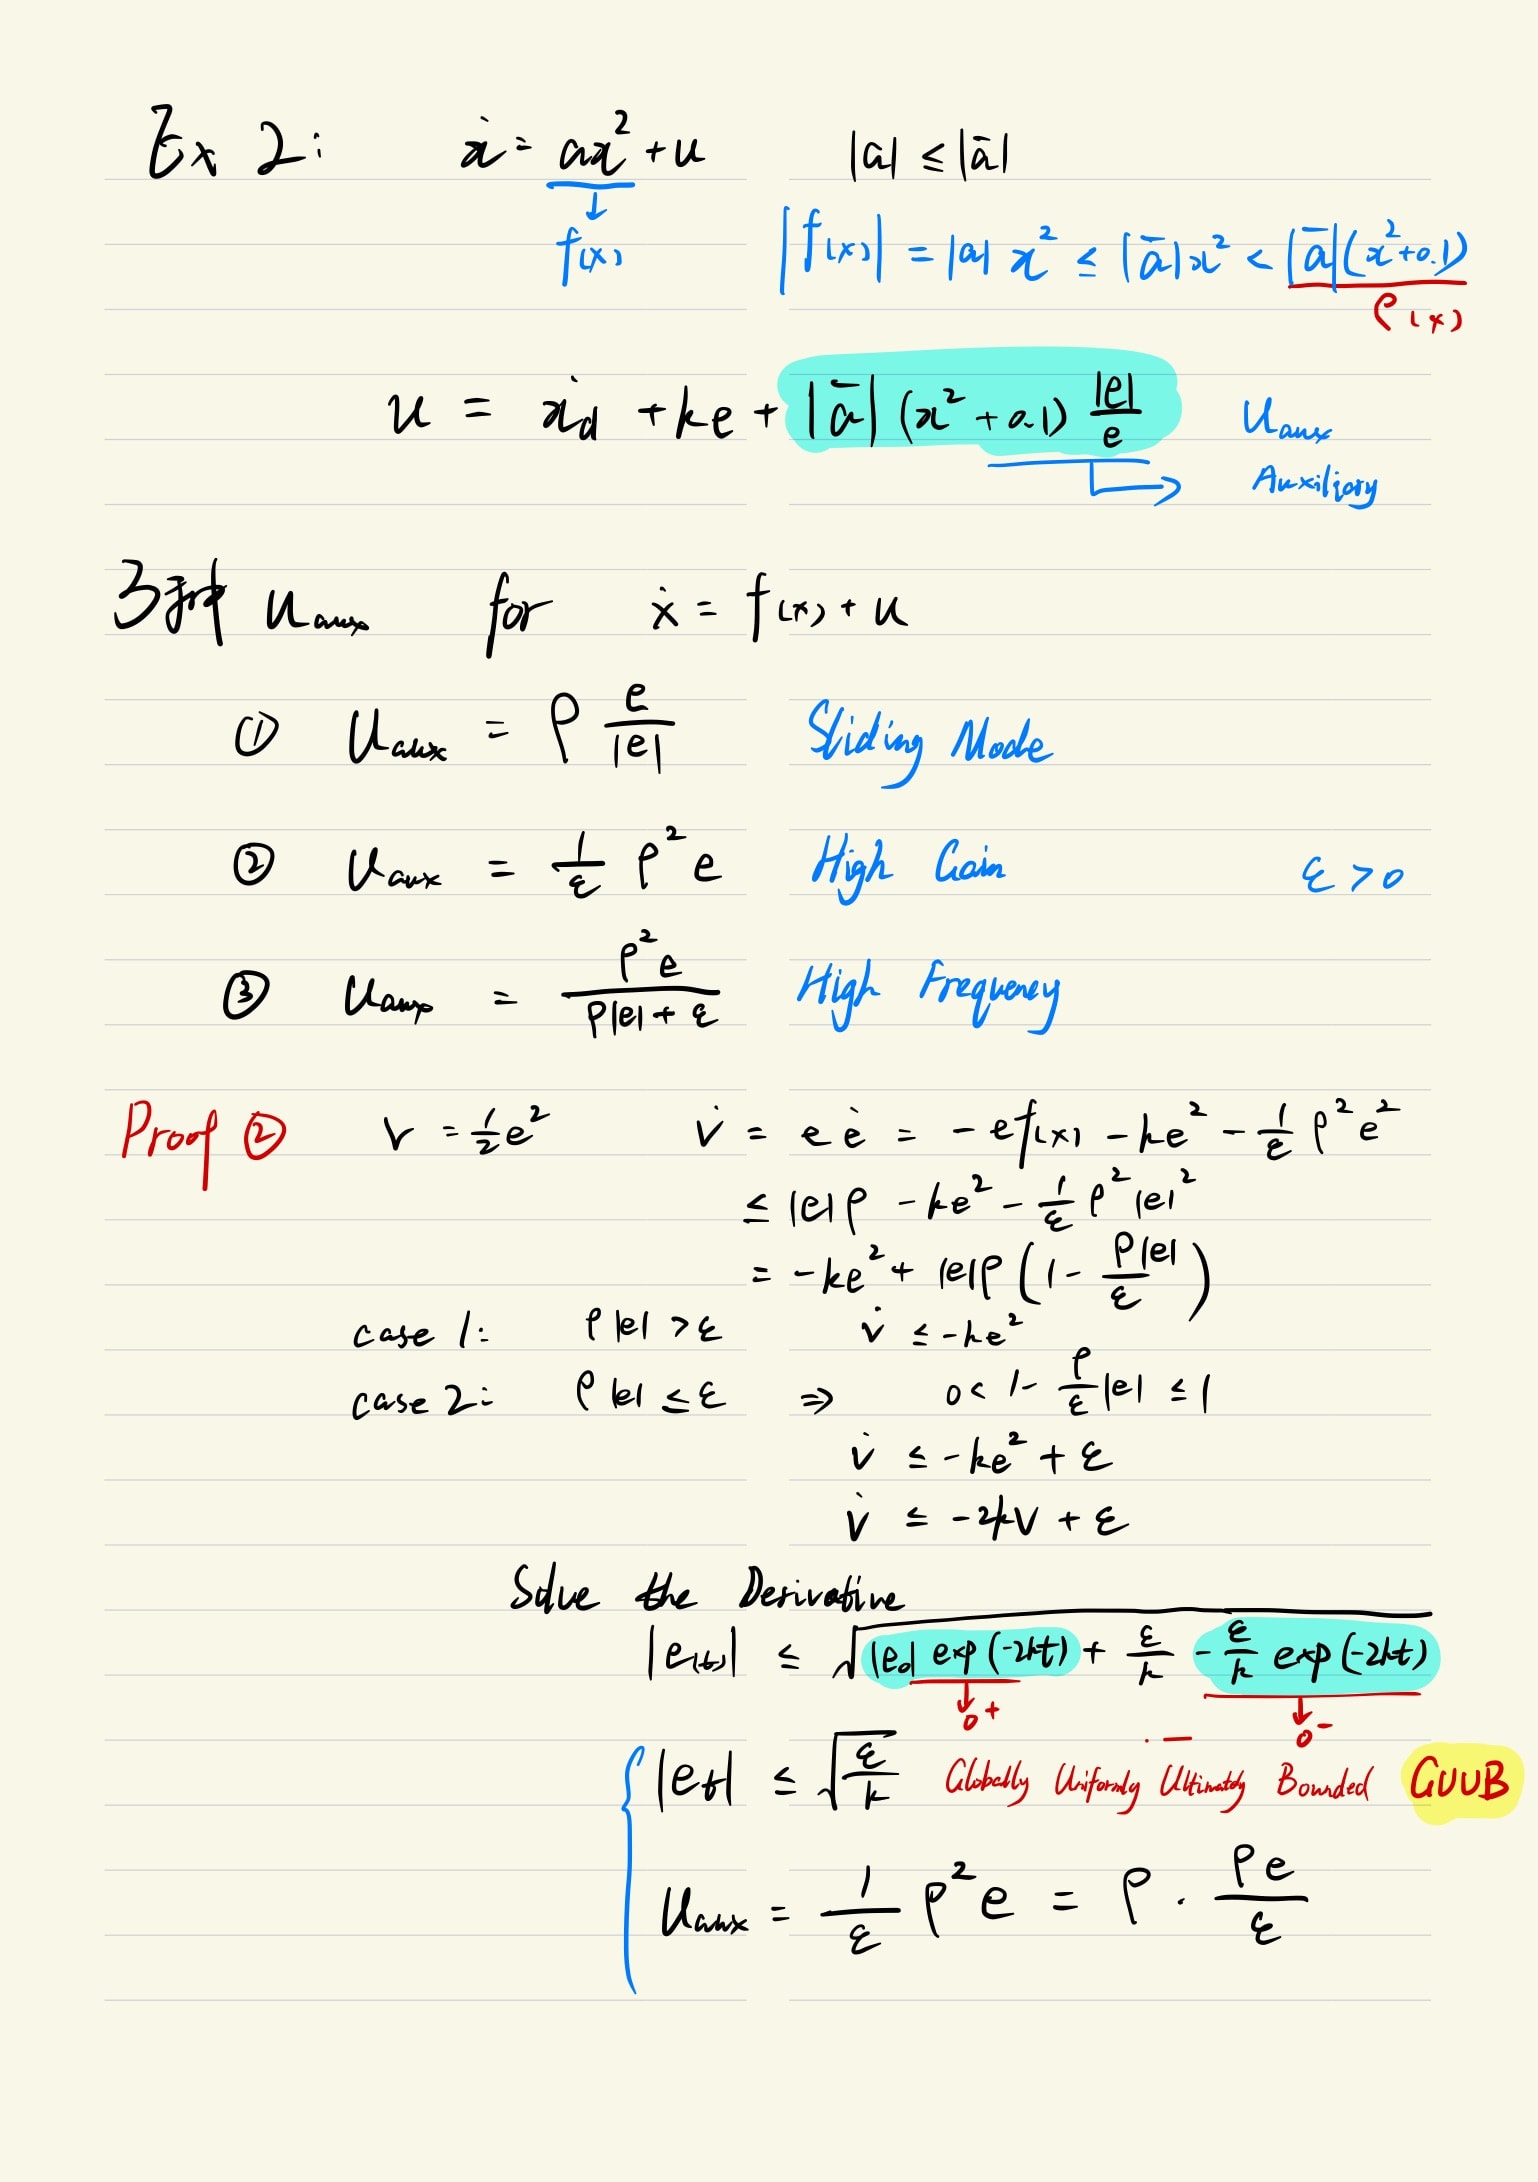 Ex 2: ẋ = ax² + u |a| ≤ |ā|
↓
f(x) |f(x)| = |a| x² ≤ |ā| x² < |ā| (x² + 0.1)
ρ(x)
u = ẋd + ke + |ā| (x² + 0.1) |e|/e Uaux
Auxiliary
3种 Uaux for ẋ = f(x) + u
① Uaux = ρ e/|e| Sliding Mode
② Uaux = 1/ε ρ² e High Gain ε > 0
③ Uaux = ρ²e/(ρ|e| + ε) High Frequency
Proof ② V = ½e² V̇ = e ė = -e f(x) - ke² - 1/ε ρ² e²
≤ |e|ρ - ke² - 1/ε ρ² |e|²
= -ke² + |e|ρ (1 - ρ|e|/ε)
case 1: ρ|e| > ε V̇ ≤ -ke²
case 2: ρ|e| ≤ ε ⇒ 0 < 1 - ρ/ε |e| ≤ 1
V̇ ≤ -ke² + ε
V̇ ≤ -2kV + ε
Solve the Derivative
|e(t)| ≤ √(|e₀| exp(-2kt) + ε/k - ε/k exp(-2kt))
↓ 0⁺ ↓ 0⁻
|et| ≤ √(ε/k) Globally Uniformly Ultimately Bounded GUUB
Uaux = 1/ε ρ² e = ρ · ρe/ε